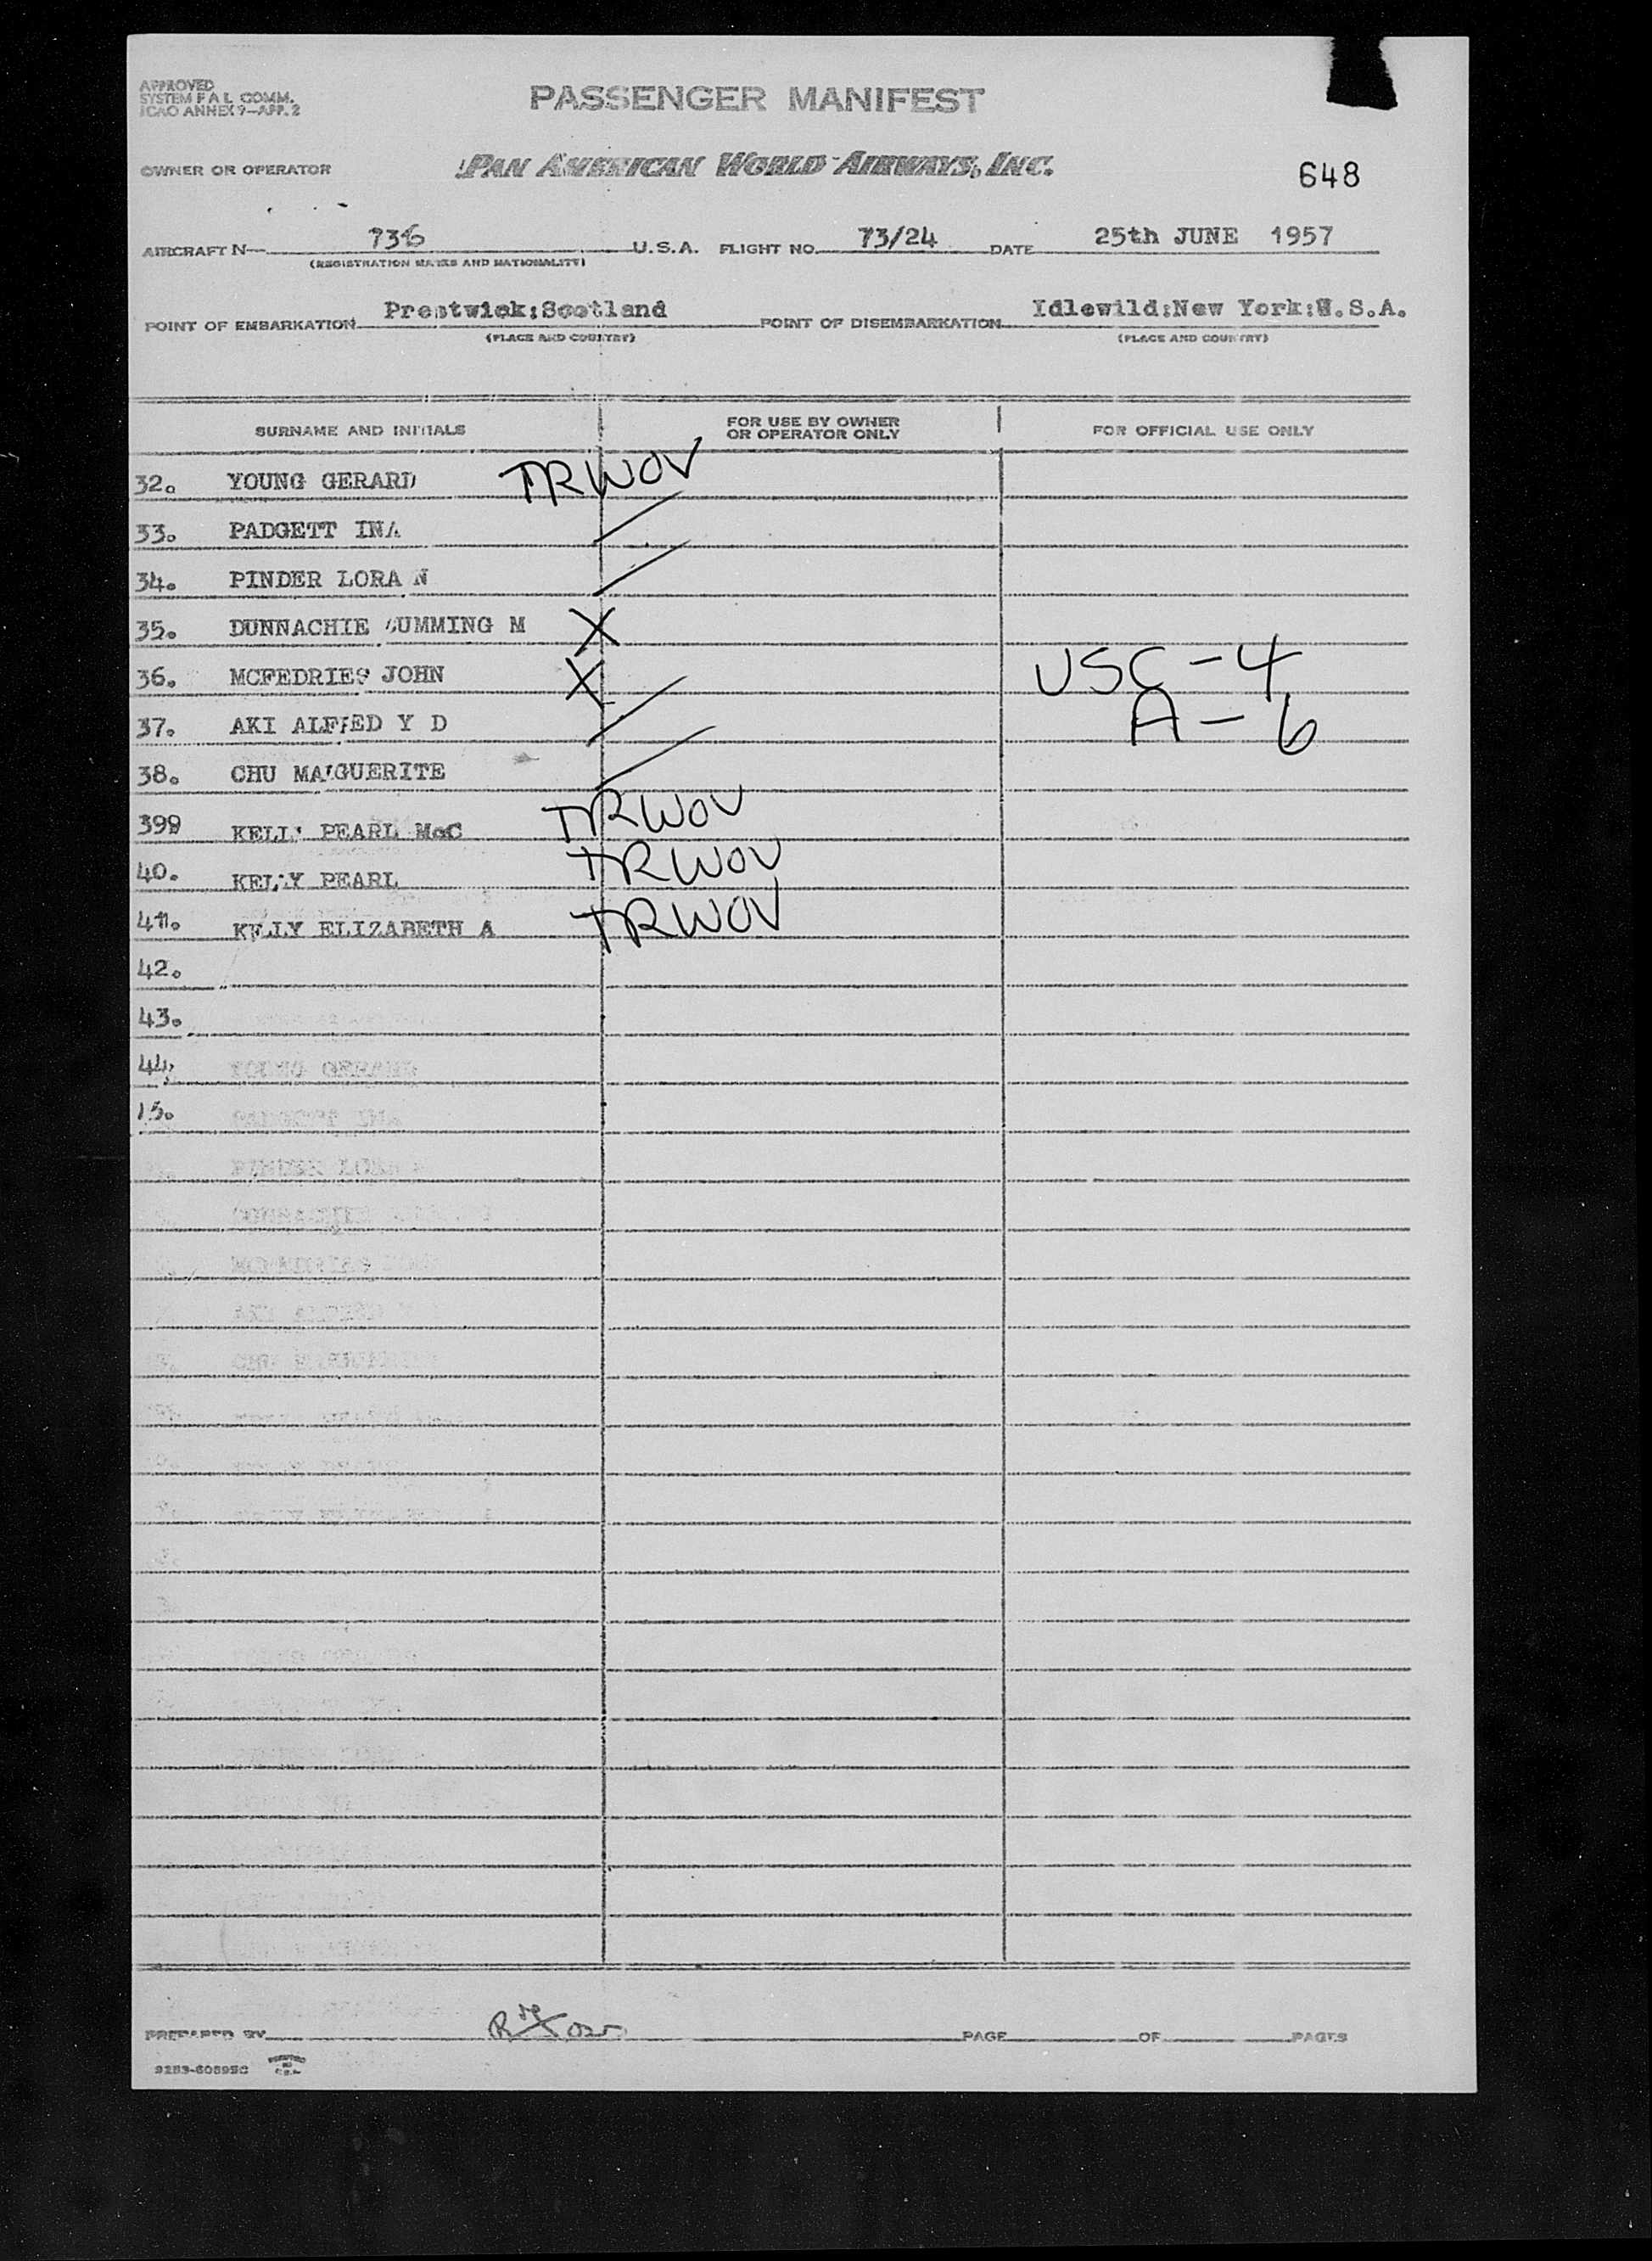 APPROVED
SYSTEM F A L COMM.
ICAO ANNEX 9-APP. 2
PASSENGER MANIFEST
OWNER OR OPERATOR PAN AMERICAN WORLD AIRWAYS, INC. 648
AIRCRAFT N— U.S.A. FLIGHT NO. 73/24 DATE 25th JUNE 1957
(REGISTRATION MARKS AND NATIONALITY)
POINT OF EMBARKATION Prestwick:Scotland POINT OF DISEMBARKATION Idlewild;New York:U.S.A.
(PLACE AND COUNTRY) (PLACE AND COUNTRY)
SURNAME AND INITIALS FOR USE BY OWNER OR OPERATOR ONLY FOR OFFICIAL USE ONLY
32. YOUNG GERARD TRWOV
33. PADGETT INA
34. PINDER LORA N
35. DUNNACHIE CUMMING M X
36. MCFEDRIES JOHN X USC-4
37. AKI ALFRED Y D A-6
38. CHU MARGUERITE
399 KELLY PEARL McC TRWOV
40. KELLY PEARL TRWOV
41. KELLY ELIZABETH A TRWOV
42.
43.
44.
45.
YOUNG GERARD
PADGETT INA
PINDER LORA N
PREPARED BY PAGE OF PAGES